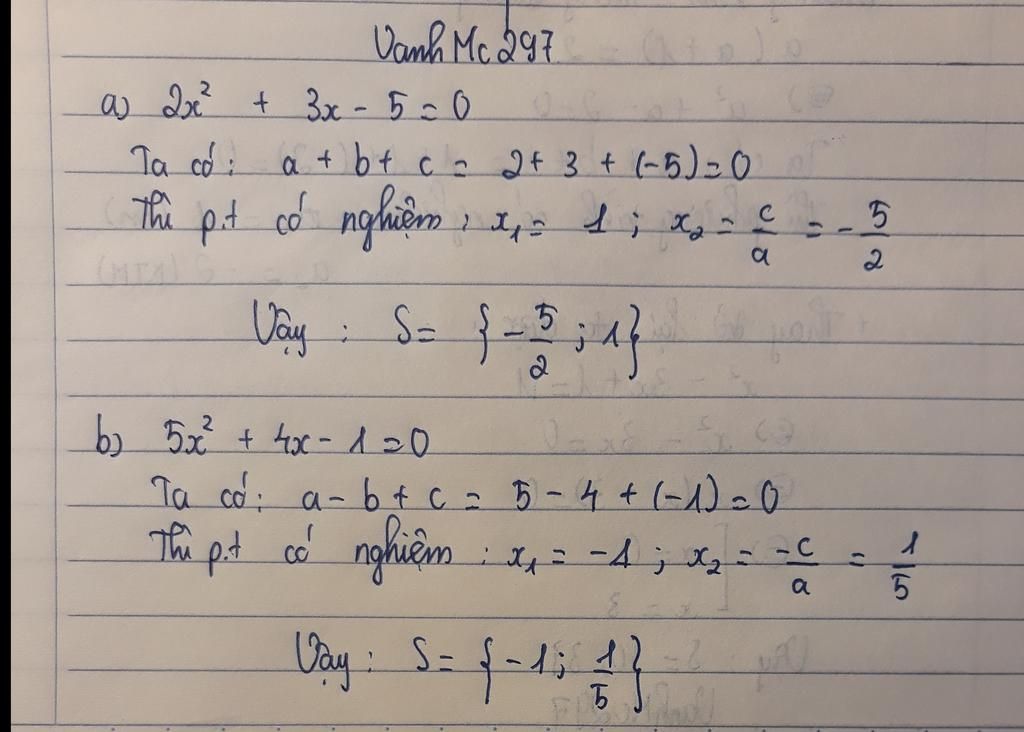 VanhMc297
a) 2x² + 3x - 5 = 0
Ta có: a + b + c = 2 + 3 + (-5) = 0
Thì p.t có nghiệm: x₁ = 1; x₂ = c/a = -5/2
Vậy: S = {-5/2; 1}
b) 5x² + 4x - 1 = 0
Ta có: a - b + c = 5 - 4 + (-1) = 0
Thì p.t có nghiệm: x₁ = -1; x₂ = -c/a = 1/5
Vậy: S = {-1; 1/5}